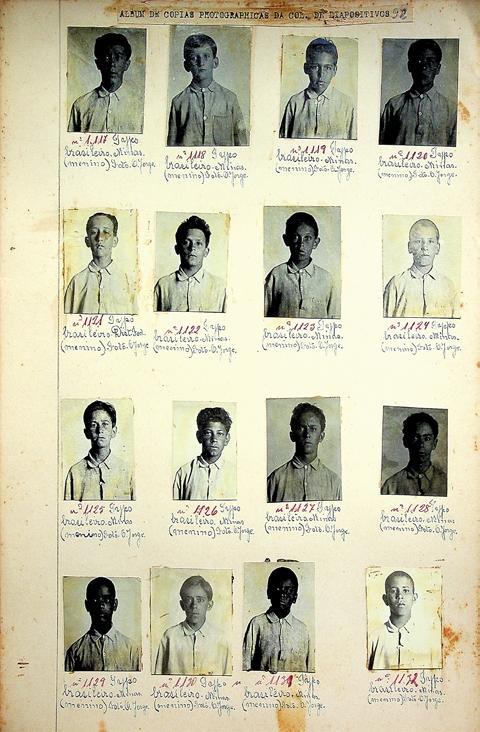 ALBUM DE COPIAS PHOTOGRAPHICAS DA COL. DE DIAPOSITIVOS 92
nº 1.117 Typo
brasileiro. Minas.
(menino) Fot. O. Jorge.
nº 1118 Typo
brasileiro. Minas.
(menino) Fot. O. Jorge.
nº 1119 Typo
brasileiro. Minas.
(menino) Fot. O. Jorge.
nº 1120 Typo
brasileiro. Minas.
(menino) Fot. O. Jorge.
nº 1121 Typo
brasileiro.
(menino) Fot. O. Jorge
nº 1122 Typo
brasileiro. Minas.
(menino) Fot. O. Jorge.
nº 1123 Typo
brasileiro. Minas.
(menino) Fot. O. Jorge.
nº 1124 Typo
brasileiro. Minas.
(menino) Fot. O. Jorge.
nº 1125 Typo
brasileiro. Minas
(menino) Fot. O. Jorge.
nº 1126 Typo
brasileiro. Minas
(menino) Fot. O. Jorge.
nº 1127 Typo
brasileiro. Minas
(menino) Fot. O. Jorge.
nº 1128 Typo
brasileiro. Minas
(menino) Fot. O. Jorge.
nº 1129 Typo
brasileiro. Minas.
(menino) Fot. O. Jorge.
nº 1130 Typo
brasileiro. Minas.
(menino) Fot. O. Jorge.
nº 1131 Typo
brasileiro. Minas
(menino) Fot. O. Jorge.
nº 1132 Typo
brasileiro. Minas.
(menino) Fot. O. Jorge.